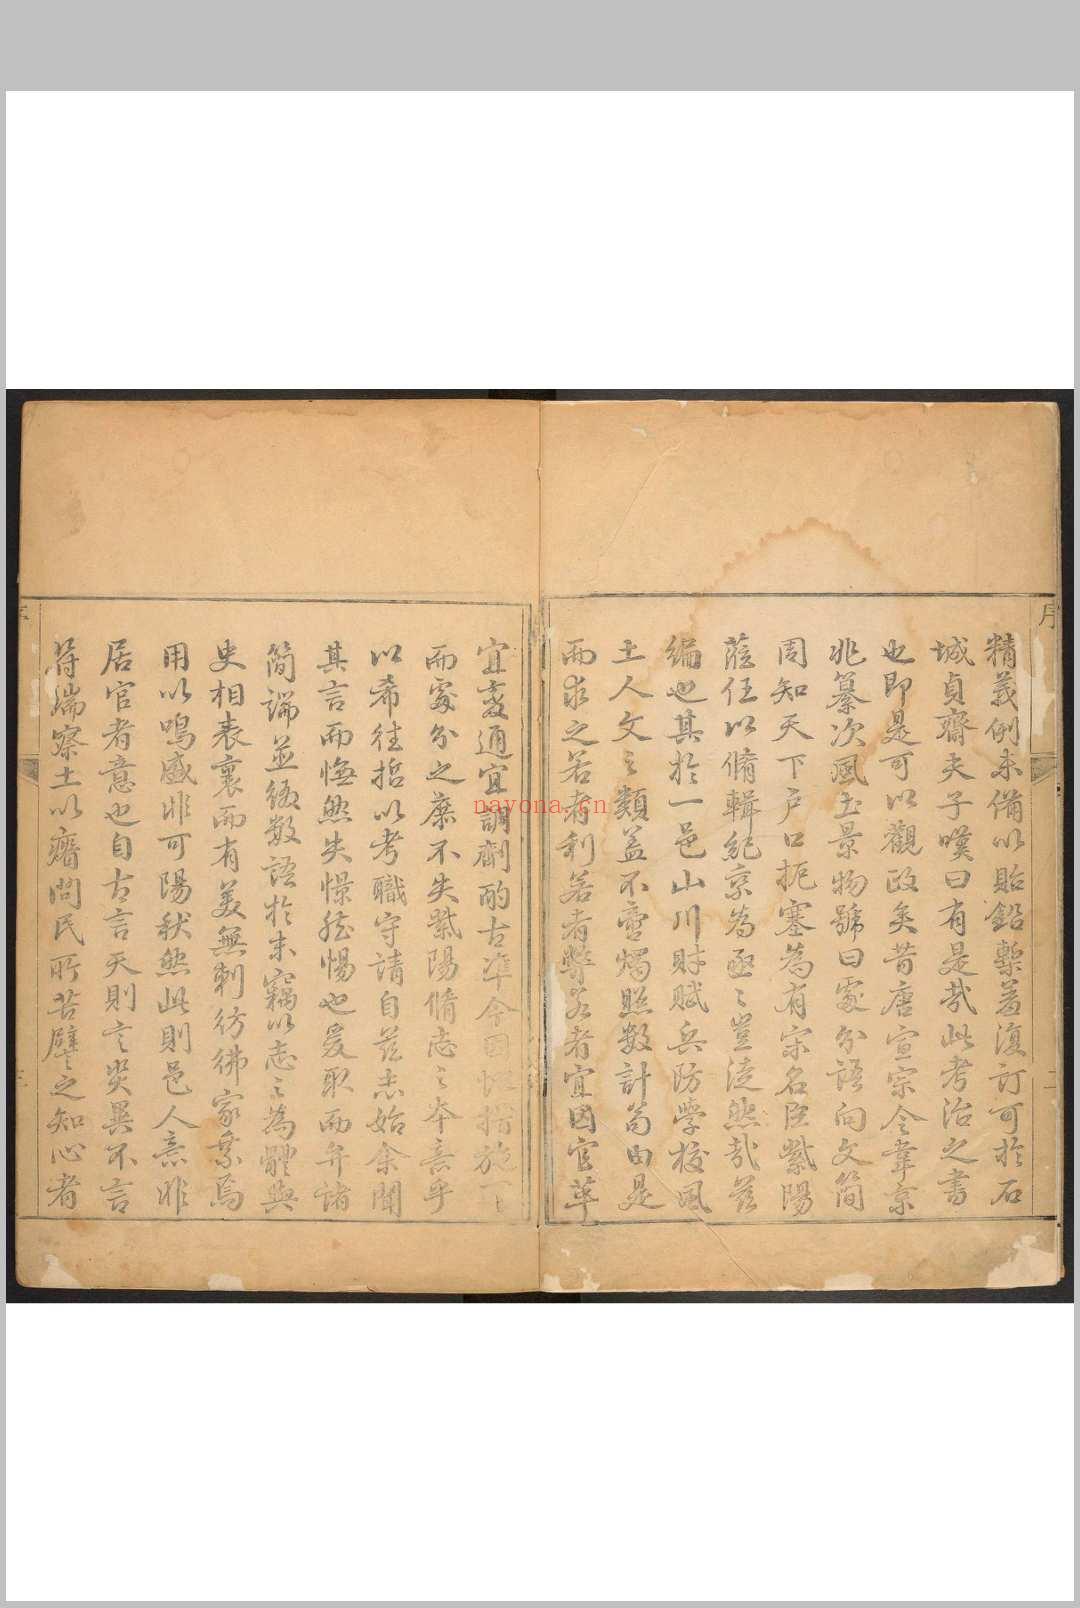 序
精義例未備以貽鉛槧羞復訂可於石
城貞齋夫子嘆曰有是哉此考治之書
也即是可以觀政矣昔唐宣宗令韋京
兆纂次風土景物號曰處分語向文簡
周知天下户口扼塞為有宋名臣紫陽
蒞任以脩輯紀宗為亟〻豈徒然哉茲
編也其於一邑山川財賦兵防學校風
土人文之類盖不啻燭照数計苟由是
而求之若者利若者弊若者宜因宜革
宜变通宜調劑酌古準今因 措施
而處分之庶不失紫陽脩志之本意乎
以希往哲以考職守請自茲志始余聞
其言而憮然失憬然惕也爰取而弁諸
簡端並綴数語於末竊以志之為體與
史相表裏而有美無刺彷彿家乘焉
用以鳴盛非可陽秋然此則邑人意非
居官者意也自古言天則言災異不言
符瑞察土以瘠問民所苦譬之知心者
nayona.cn